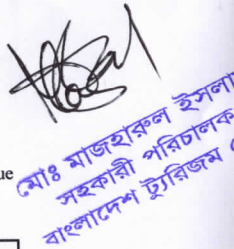 ue
মোঃ মাজহারুল ইসলা
সহকারী পরিচালক
বাংলাদেশ ট্যুরিজম